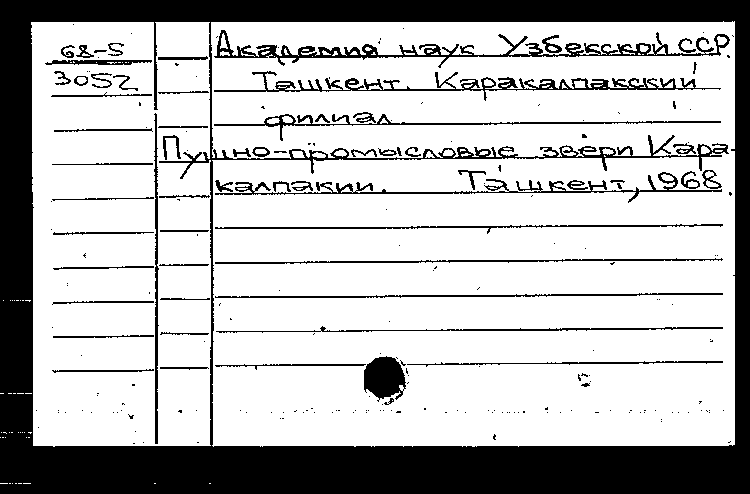 68-5
3052
Академия наук Узбекской ССР.
Ташкент. Каракалпакский
филиал.
Пушно-промысловые звери Кара-
калпакии. Ташкент, 1968.